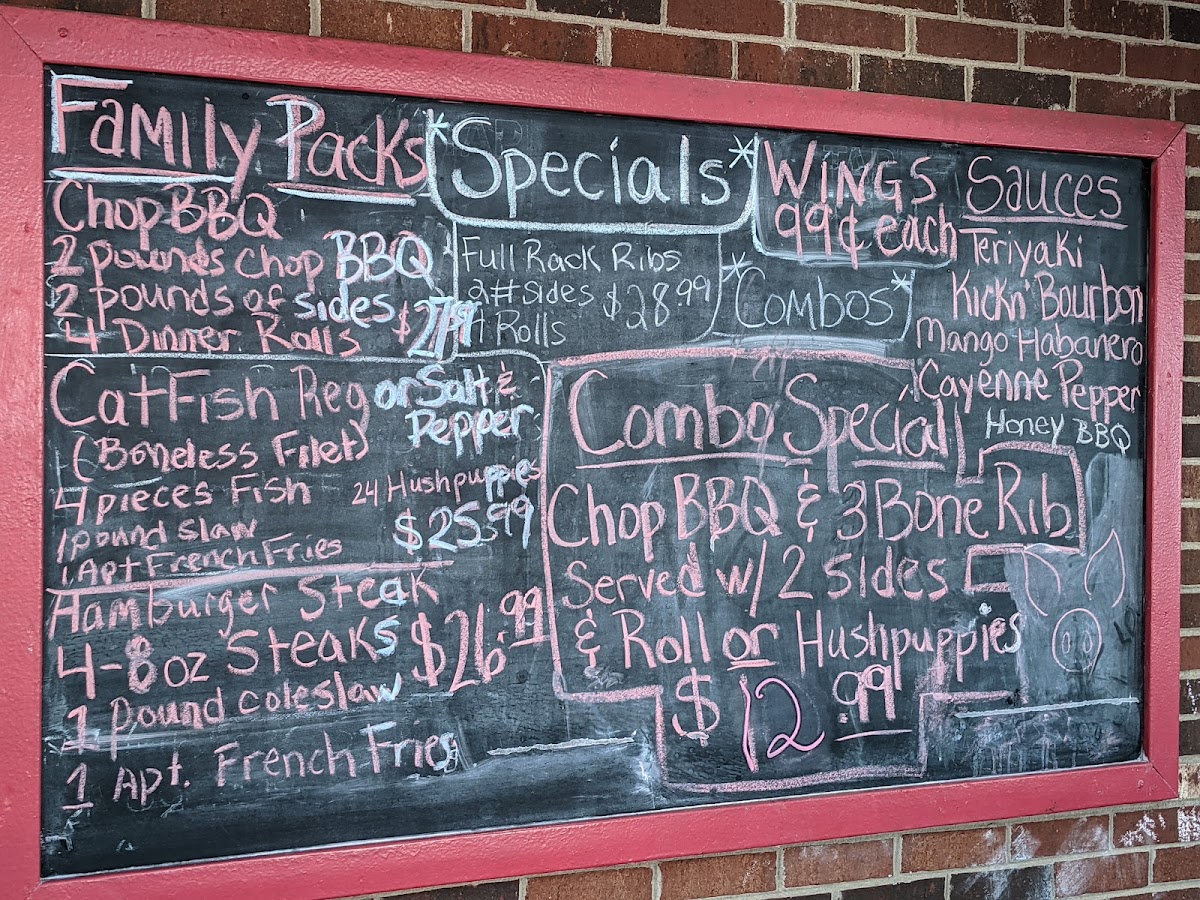 Family Packs
Chop BBQ
2 pounds chop BBQ
2 pounds of sides
4 Dinner Rolls $27.99
CatFish Reg or Salt &
Pepper
(Boneless Filet)
4 pieces Fish 24 Hushpuppies
1 pound slaw $25.99
1 Apt French Fries
Hamburger Steak
4-8 oz Steaks $26.99
1 Pound coleslaw
1 Apt. French Fries
*Specials*
Full Rack Ribs
2# sides $28.99
4 Rolls
WINGS
99¢ each
*Combos*
Sauces
Teriyaki
Kickn' Bourbon
Mango Habanero
Cayenne Pepper
Honey BBQ
Combo Special
Chop BBQ & 3 Bone Rib
Served w/ 2 sides
& Roll or Hushpuppies
$12.99